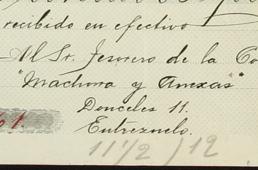 recibido en efectivo
Al Sr. Tesorero de la Co
"Machorra y Anexas"
Donceles 11.
Entrezuelo.
61.
11 1/2 / 12